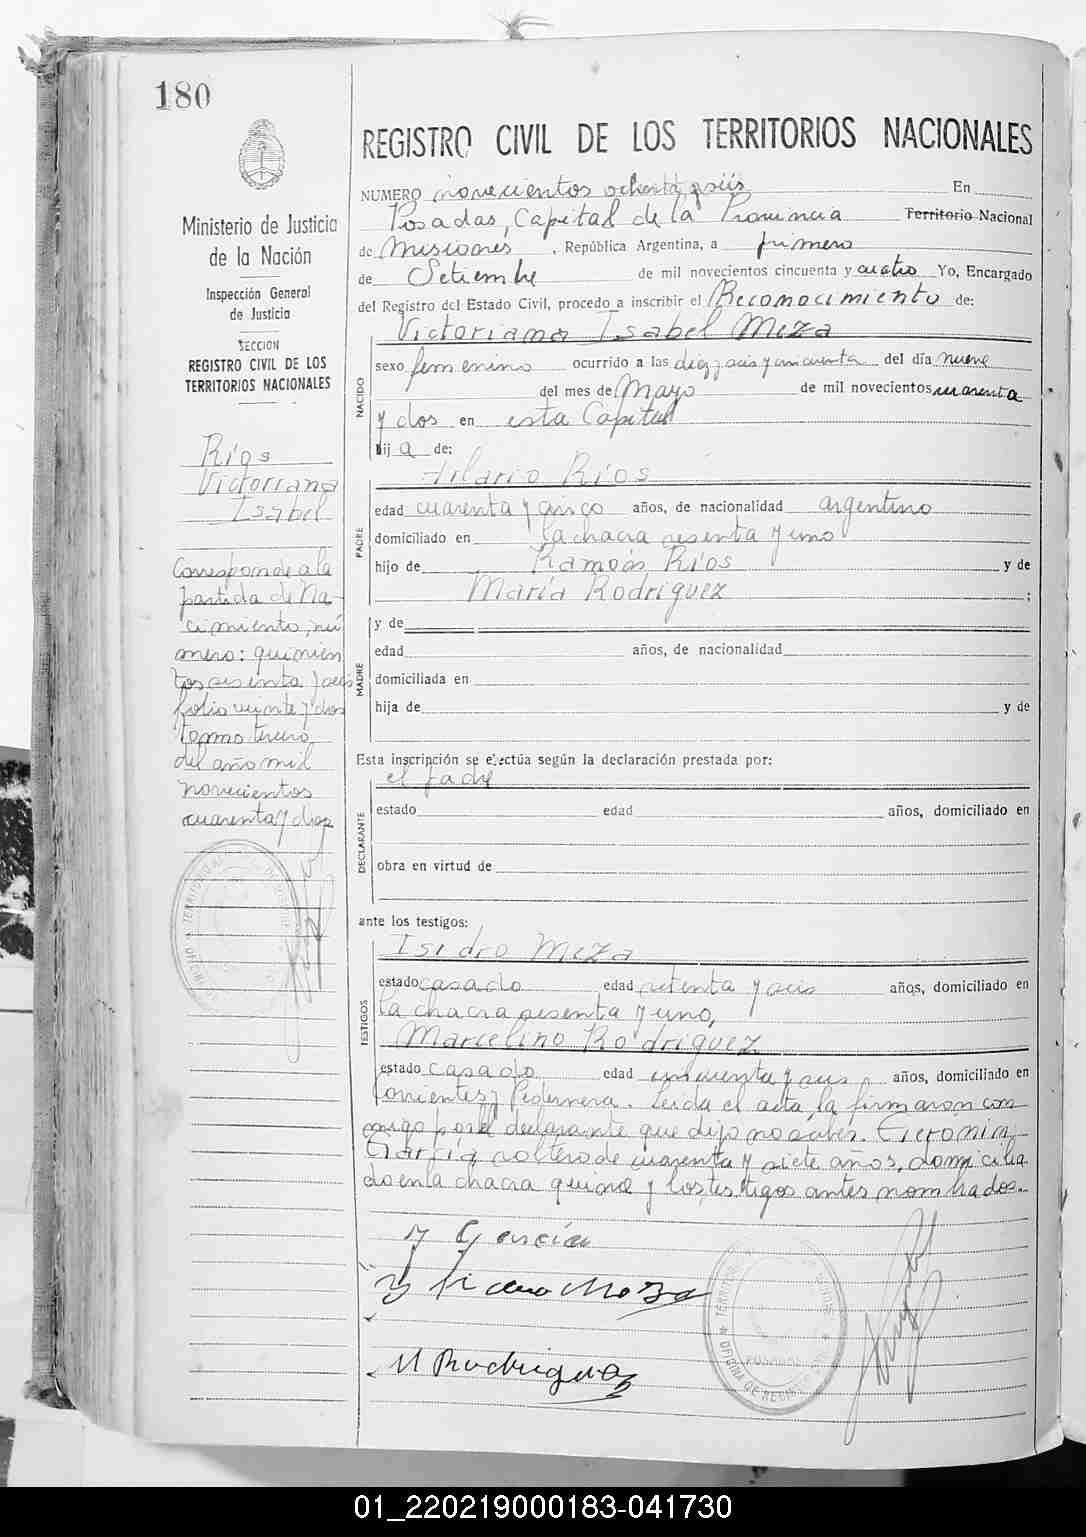 180
REGISTRO CIVIL DE LOS TERRITORIOS NACIONALES
Ministerio de Justicia
de la Nación
Inspección General
de Justicia
SECCION
REGISTRO CIVIL DE LOS
TERRITORIOS NACIONALES
Ríos
Victoriana
Isabel
Corresponde a la
partida de Na-
cimiento, nú
mero: quinien
tos sesenta y seis
folio veinte y dos
tomo tercero
del año mil
novecientos
cuarenta y dos
NUMERO novecientos ochenta y seis En
Posadas, Capital de la Provincia Territorio Nacional
de Misiones, República Argentina, a primero
de Setiembre de mil novecientos cincuenta y cuatro Yo, Encargado
del Registro del Estado Civil, procedo a inscribir el Reconocimiento de:
NACIDO
Victoriana Isabel Meza
sexo femenino ocurrido a las diez y seis y cincuenta del día nueve
del mes de Mayo de mil novecientos cuarenta
y dos en esta Capital
hija de:
PADRE
Hilario Ríos
edad cuarenta y cinco años, de nacionalidad argentino
domiciliado en la chacra sesenta y uno
hijo de Ramón Ríos y de
María Rodriguez ;
MADRE
y de
edad años, de nacionalidad
domiciliada en
hija de y de
Esta inscripción se efectúa según la declaración prestada por:
DECLARANTE
el padre
estado edad años, domiciliado en
obra en virtud de
ante los testigos:
TESTIGOS
Isidro Meza
estado casado edad setenta y seis años, domiciliado en
la chacra sesenta y uno,
Marcelino Rodriguez
estado casado edad cincuenta y seis años, domiciliado en
Corrientes y Pedernera. Leida el acta, la firmaron con
migo por el declarante que dijo no saber.
García soltero de cuarenta y siete años, domicilia
do en la chacra quince y los testigos antes nombrados.
García
Meza
M Rodriguez
POSADAS
01_220219000183-041730